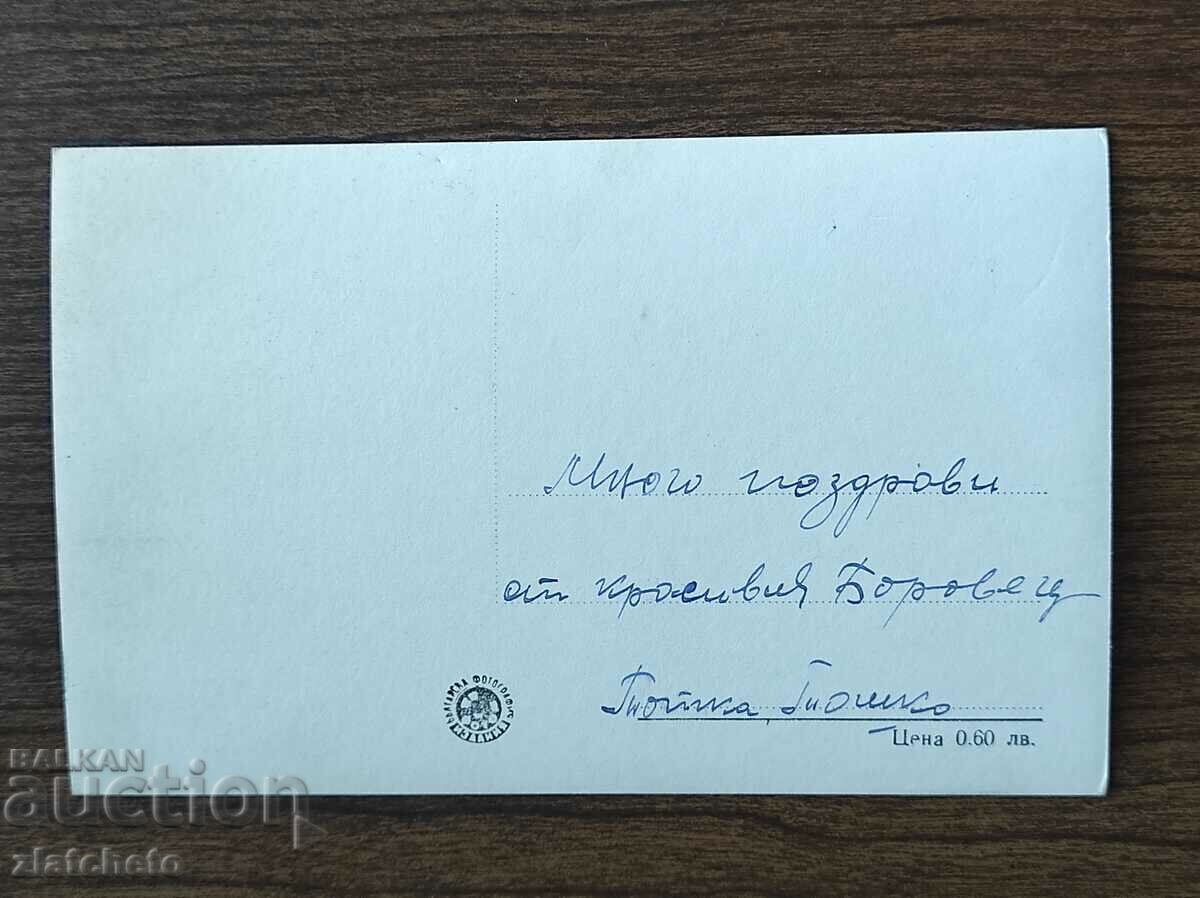 Много поздрави
от красивия Боровец
Тотка, Тошко
БЪЛГАРСКА ФОТОГРАФИЯ
Цена 0.60 лв.
BALKAN
auction
zlatcheto